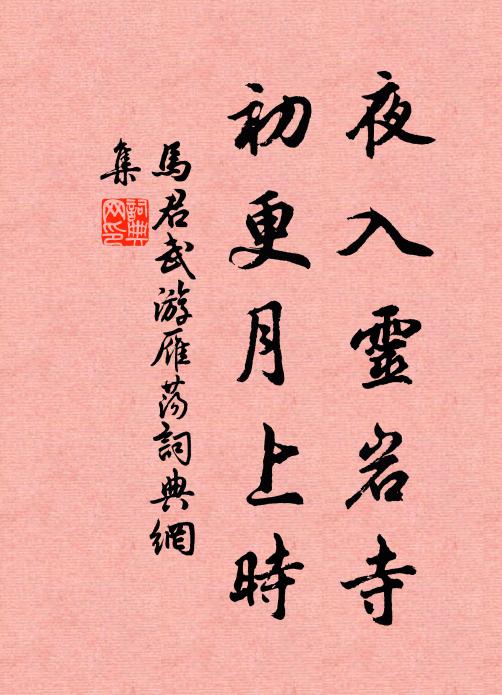 夜入靈岩寺
初更月上時
馬君武游雁蕩詞典網
集
詞典
网印